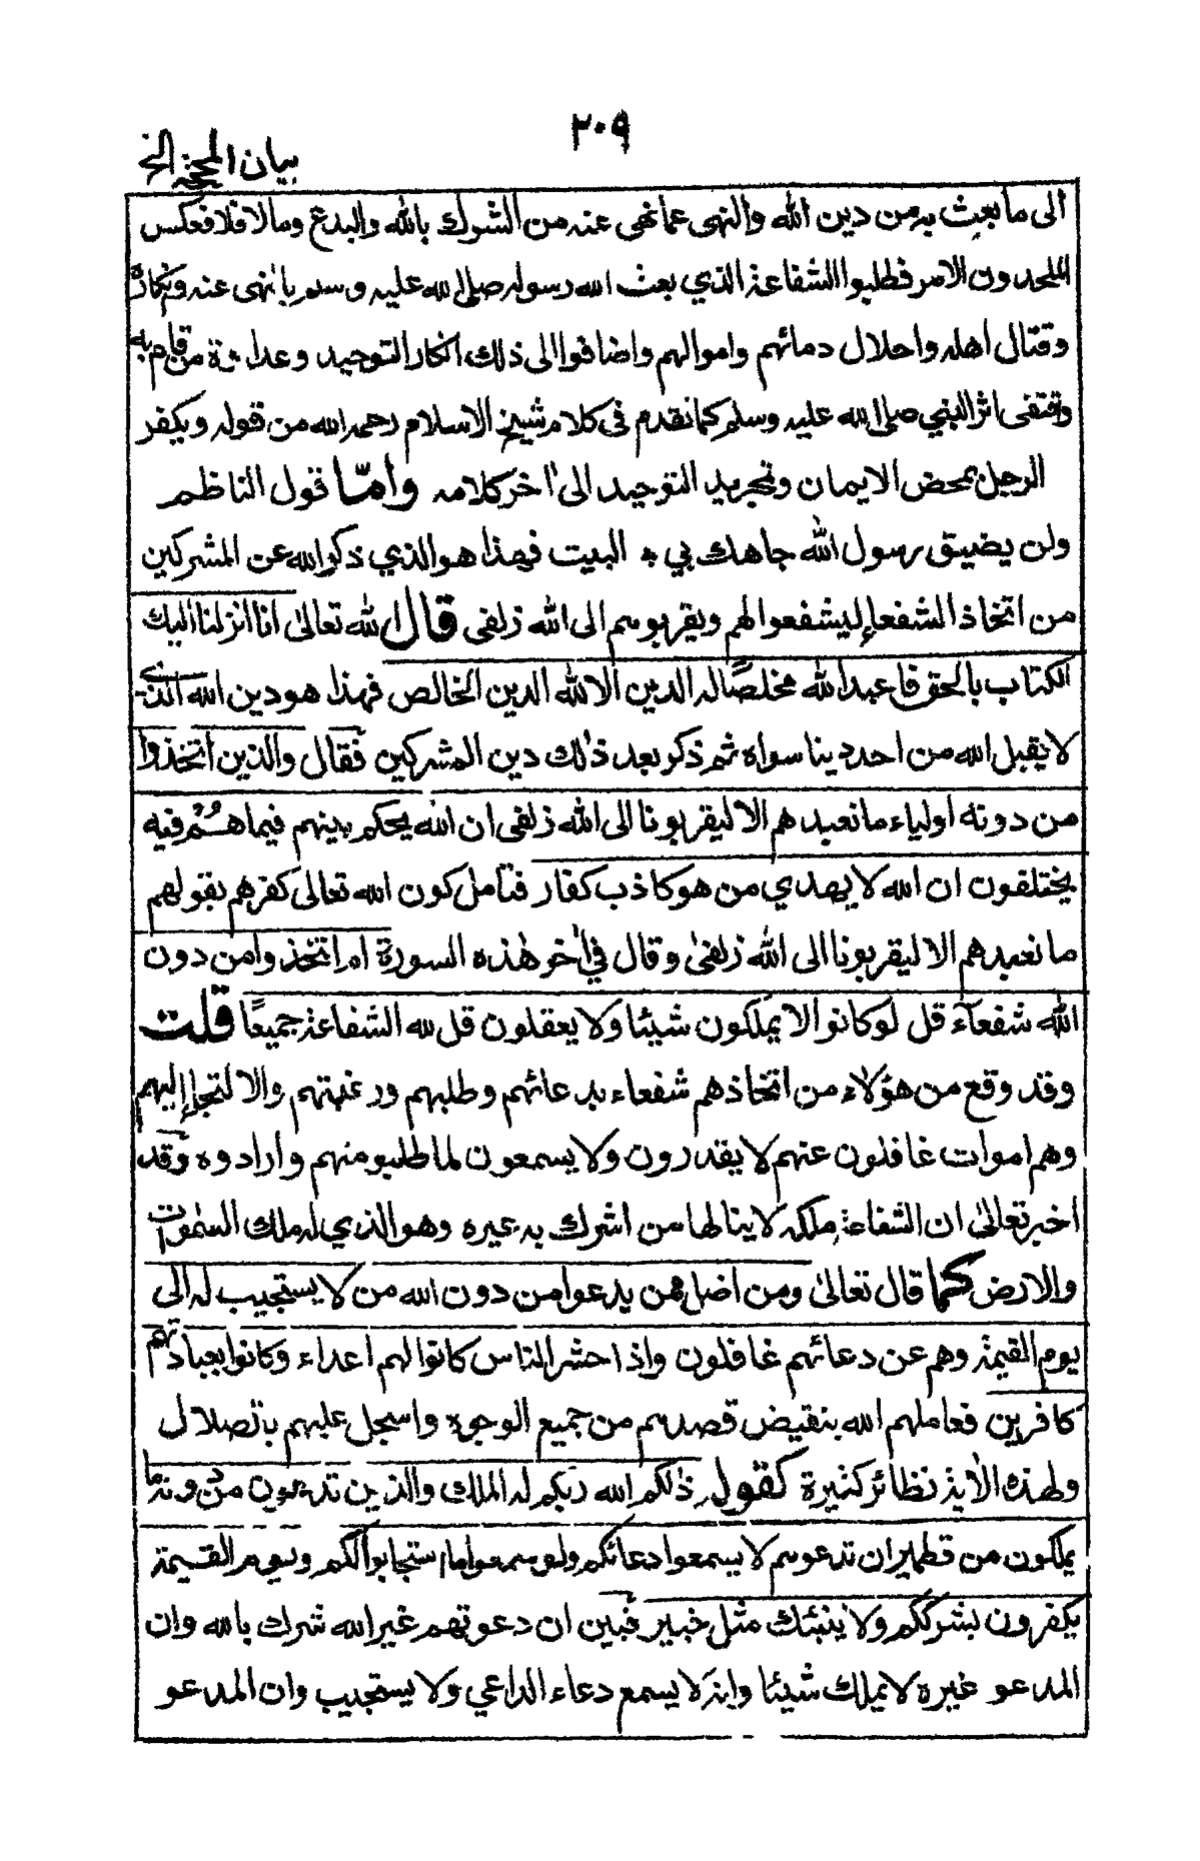 ٢٠٩
بيان المحجة الخ
الى ما بعث به من دين الله والنهى عما نهى عنه من الشرك بالله والبدع ومالا فلا فعكس
الملحدون الامر فطلبوا الشفاعة الذي بعث الله رسوله صلى الله عليه وسلم بانهى عنه
وقتال اهله واحلال دمائهم واموالهم واضافوا الى ذلك انكار التوحيد وعداوة من قام به
واقتفى اثر النبي صلى الله عليه وسلم كما تقدم فى كلام شيخ الاسلام رحمه الله من قوله ويكفر
الرجل بمحض الايمان وتجريد التوحيد الى اٰخر كلامه وأمّا قول الناظم
ولن يضيق رسول الله جاهك بي * البيت فهذا هو الذي ذكر الله عن المشركين
من اتخاذ الشفعاء ليشفعوا لهم ويقربوهم الى الله زلفى قال الله تعالىٰ انا انزلنا اليك
الكتاب بالحق فاعبد الله مخلصًا له الدين الا لله الدين الخالص فهذا هو دين الله الذي
لا يقبل الله من احد دينا سواه ثم ذكر بعد ذٰلك دين المشركين فقال والذين اتخذوا
من دونه أولياء ما نعبدهم الا ليقربونا الى الله زلفى ان الله يحكم بينهم فيما هُمْ فيه
يختلفون ان الله لا يهدي من هو كاذب كفار فتامل كون الله تعالىٰ كفرهم بقولهم
ما نعبدهم الا ليقربونا الى الله زلفىٰ وقال في اٰخر هٰذه السورة ام اتخذوا من دون
الله شفعآء قل أولو كانوا لا يملكون شيئا ولا يعقلون قل لله الشفاعة جميعًا قلت
وقد وقع من هؤلاء من اتخاذهم شفعاء بدعائهم وطلبهم ورغبتهم والالتجاء إليهم
وهم اموات غافلون عنهم لا يقدرون ولا يسمعون لما طلبو منهم وأرادوه وقد
اخبر تعالىٰ ان الشفاعة ملكه لا ينالها من اشرك به غيره وهو الذي له ملك السمٰوات
والارض كما قال تعالىٰ ومن اضل ممن يدعوا من دون الله من لا يستجيب له الى
يوم القيمة وهم عن دعائهم غافلون واذا حشر الناس كانوا لهم اعداء وكانوا بعبادتهم
كافرين فعاملهم الله بنقيض قصدهم من جميع الوجوه واسجل عليهم بالضلال
ولهذه الاٰية نظائر كثيرة كقوله ذٰلكم الله ربكم له الملك والذين تدعون من دونه ما
يملكون من قطمير ان تدعوهم لا يسمعوا دعائكم ولو سمعوا ما استجابوا لكم ويوم القيمة
يكفرون بشرككم ولا ينبئك مثل خبير فبين ان دعوتهم غير الله شرك بالله وان
المدعو غيره لا يملك شيئا وانه لا يسمع دعاء الداعي ولا يستجيب وان المدعو